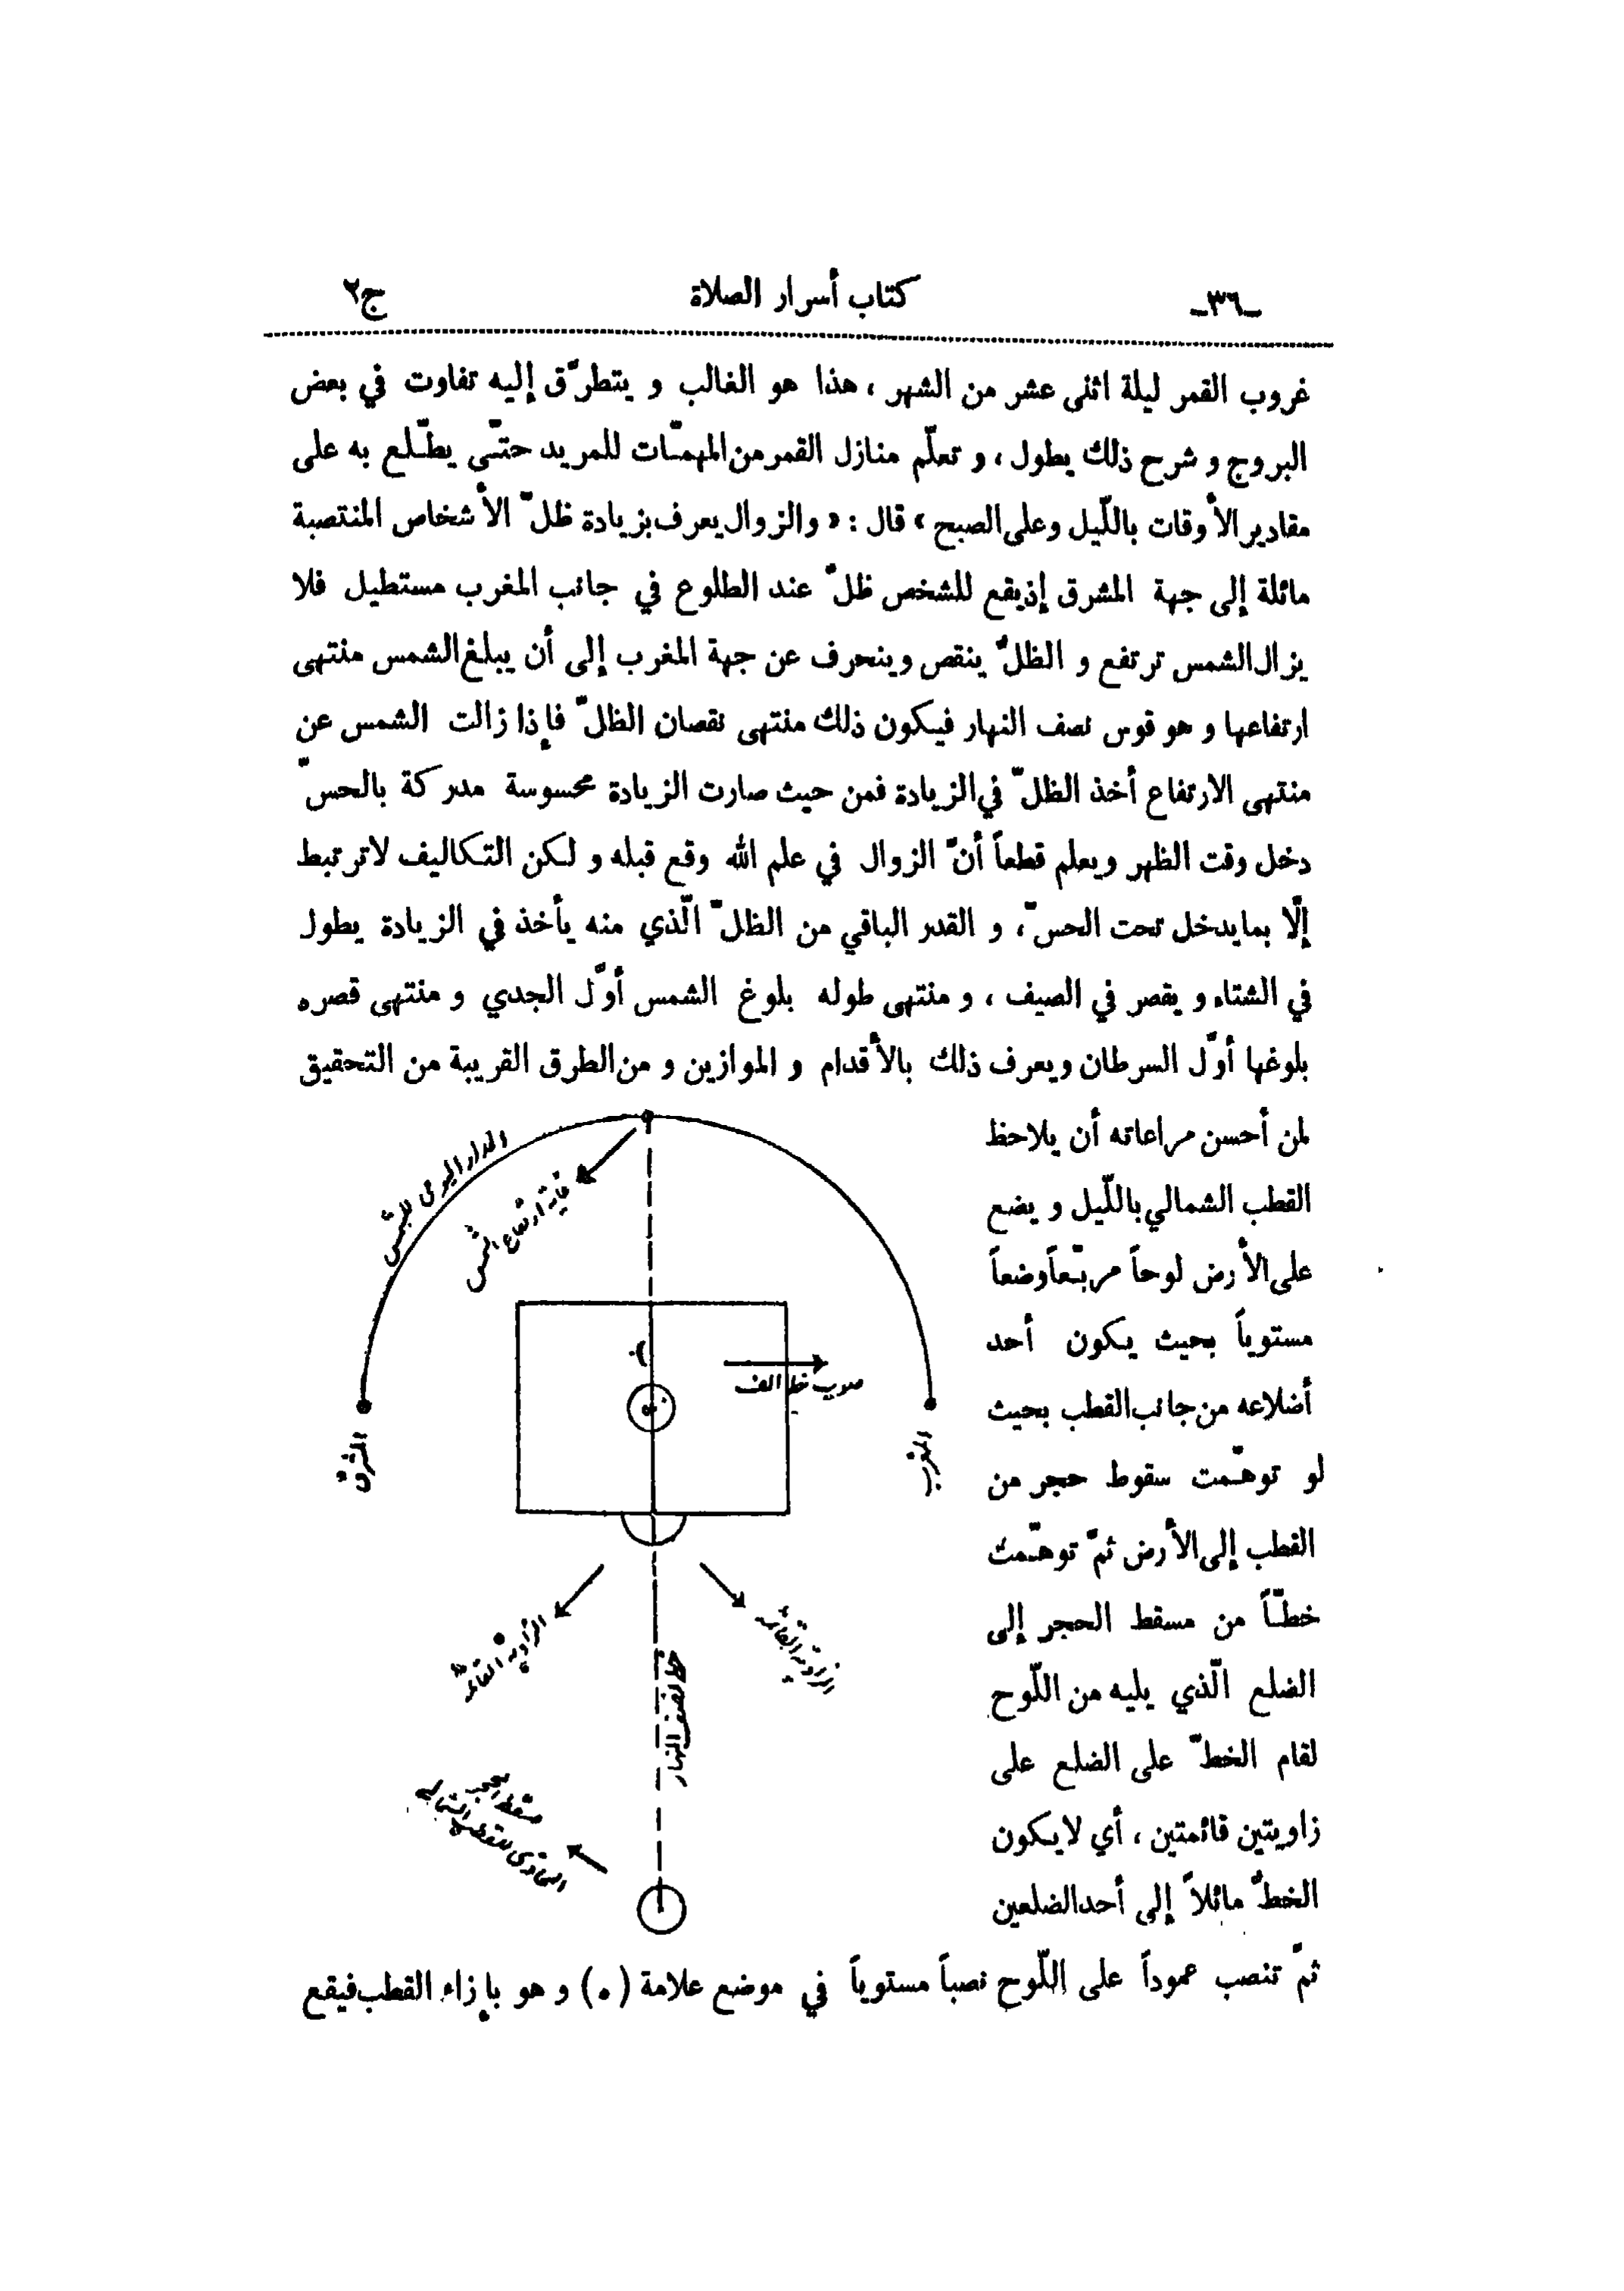 ـ٣٦ـ كتاب أسرار الصلاة ج٢
غروب القمر ليلة اثنى عشر من الشهر ، هذا هو الغالب و يتطرّق إليه تفاوت في بعض
البروج و شرح ذلك يطول ، و تعلّم منازل القمر من المهمّات للمريد حتّى يطّلع به على
مقادير الأوقات باللّيل وعلى الصبح » قال : « والزوال يعرف بزيادة ظلّ الأشخاص المنتصبة
مائلة إلى جهة المشرق إذ يقع للشخص ظلّ عند الطلوع في جانب المغرب مستطيل فلا
يزال الشمس ترتفع و الظلّ ينقص وينحرف عن جهة المغرب إلى أن يبلغ الشمس منتهى
ارتفاعها و هو قوس نصف النهار فيكون ذلك منتهى نقصان الظلّ فإذا زالت الشمس عن
منتهى الارتفاع أخذ الظلّ في الزيادة فمن حيث صارت الزيادة محسوسة مدركة بالحسّ
دخل وقت الظهر ويعلم قطعاً أنّ الزوال في علم الله وقع قبله و لكن التكاليف لاترتبط
إلّا بمايدخل تحت الحسّ ، و القدر الباقي من الظلّ الّذي منه يأخذ في الزيادة يطول
في الشتاء و يقصر في الصيف ، و منتهى طوله بلوغ الشمس أوّل الجدي و منتهى قصره
بلوغها أوّل السرطان ويعرف ذلك بالأقدام و الموازين و من الطرق القريبة من التحقيق
لمن أحسن مراعاته أن يلاحظ
القطب الشمالي باللّيل و يضع
على الأرض لوحاً مربّعاً وضعاً
مستوياً بحيث يكون أحد
أضلاعه من جانب القطب بحيث
لو توهّمت سقوط حجر من
القطب إلى الأرض ثمّ توهّمت
خطّاً من مسقط الحجر إلى
الضلع الّذي يليه من اللّوح
لقام الخطّ على الضلع على
زاويتين قائمتين ، أي لايكون
الخطّ مائلاً إلى أحد الضلعين
المدار اليومى للشمس
غاية ارتفاع الشمس
صوب خط الف
المشرق
المغرب
الزاوية القائمة
الزاوية القائمة
خط نصف النهار
مسقط الحجر
ثمّ تنصب عموداً على اللّوح نصباً مستوياً في موضع علامة ( ه ) و هو بإزاء القطب فيقع